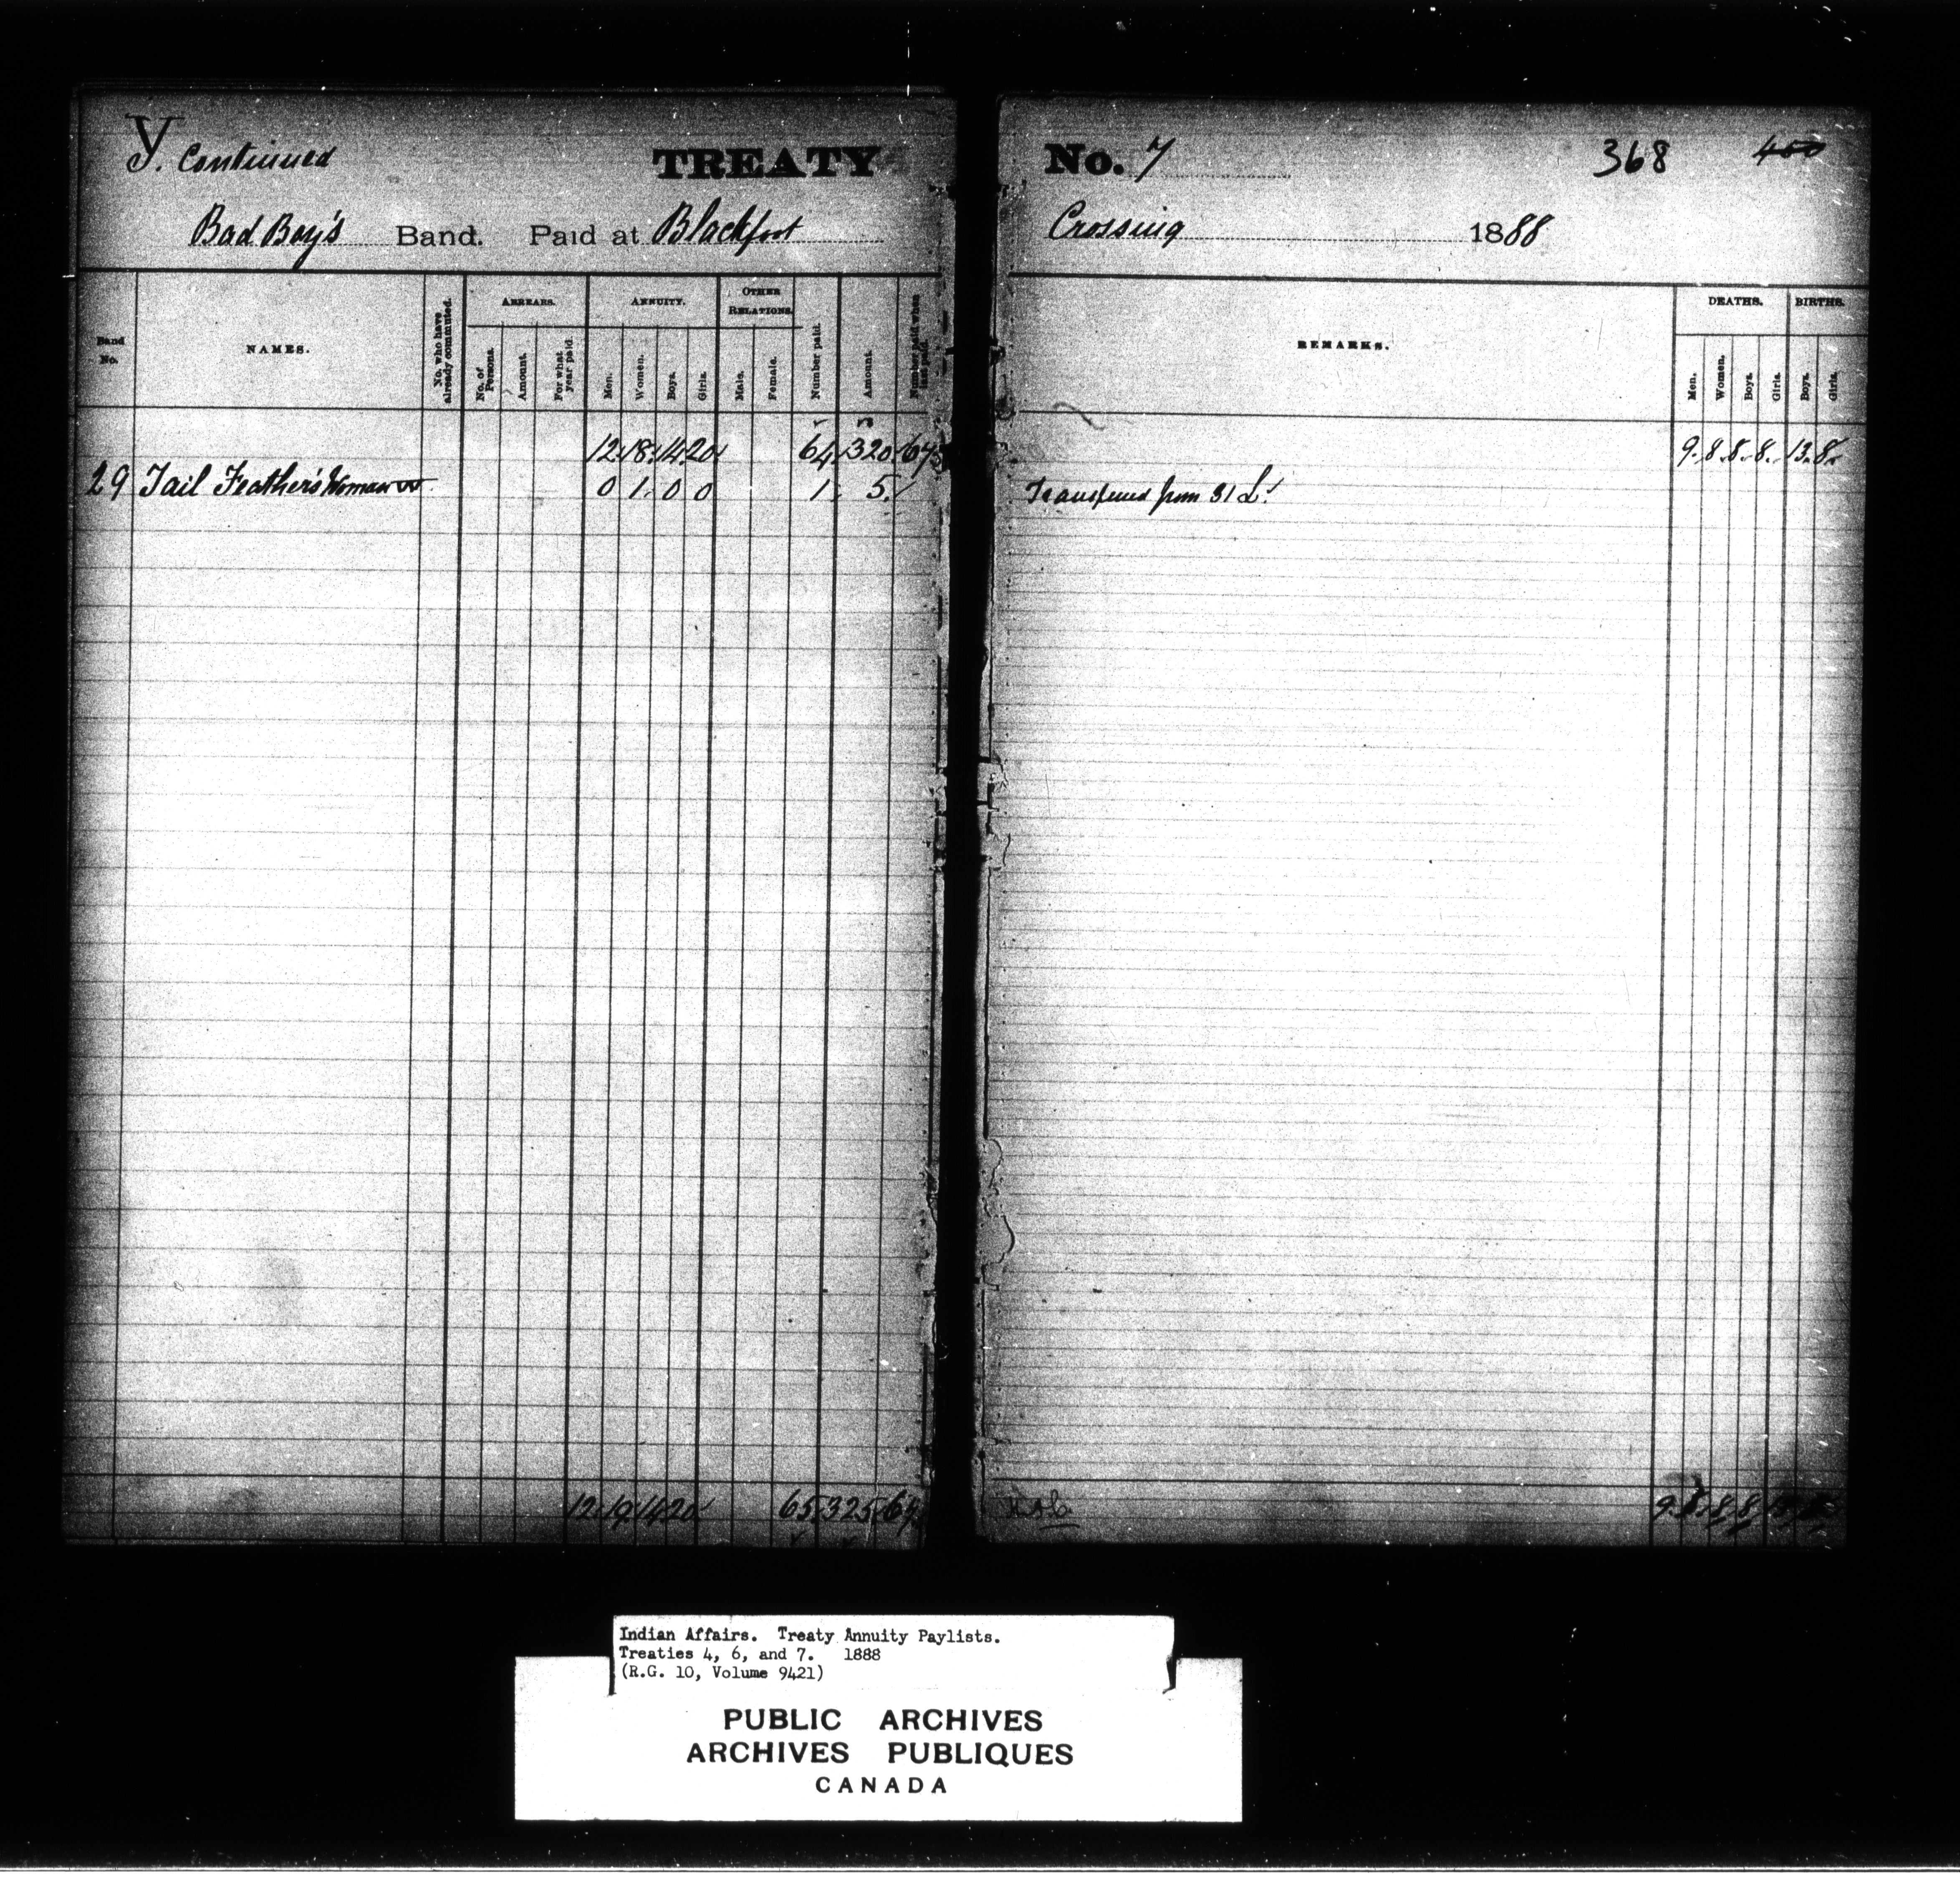 Y. Continued TREATY No. 7 368 400
Bad Boy's Band. Paid at Blackfoot Crossing 1888
Band No.
NAMES.
No. who have already commuted.
ARREARS.
No. of Persons.
Amount.
For what year paid.
ANNUITY.
Men.
Women.
Boys.
Girls.
OTHER RELATIONS.
Male.
Female.
Number paid.
Amount.
Number paid when last paid.
REMARKS.
DEATHS.
Men.
Women.
Boys.
Girls.
BIRTHS.
Boys.
Girls.
12 18 14 20 64 320 67 9 8 8 8 13 8
29 Tail Feather's Woman W 0 1 0 0 1 5 Transferred from 31 L
12 19 14 20 65 325 67 9 8 8 8
Indian Affairs. Treaty Annuity Paylists.
Treaties 4, 6, and 7. 1888
(R.G. 10, Volume 9421)
PUBLIC ARCHIVES
ARCHIVES PUBLIQUES
CANADA